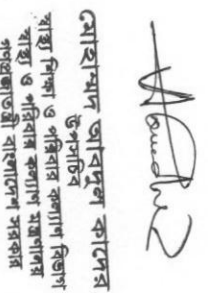 মোহাম্মদ আবদুল কাদের
উপসচিব
স্বাস্থ্য শিক্ষা ও পরিবার কল্যাণ বিভাগ
স্বাস্থ্য ও পরিবার কল্যাণ মন্ত্রণালয়
গণপ্রজাতন্ত্রী বাংলাদেশ সরকার